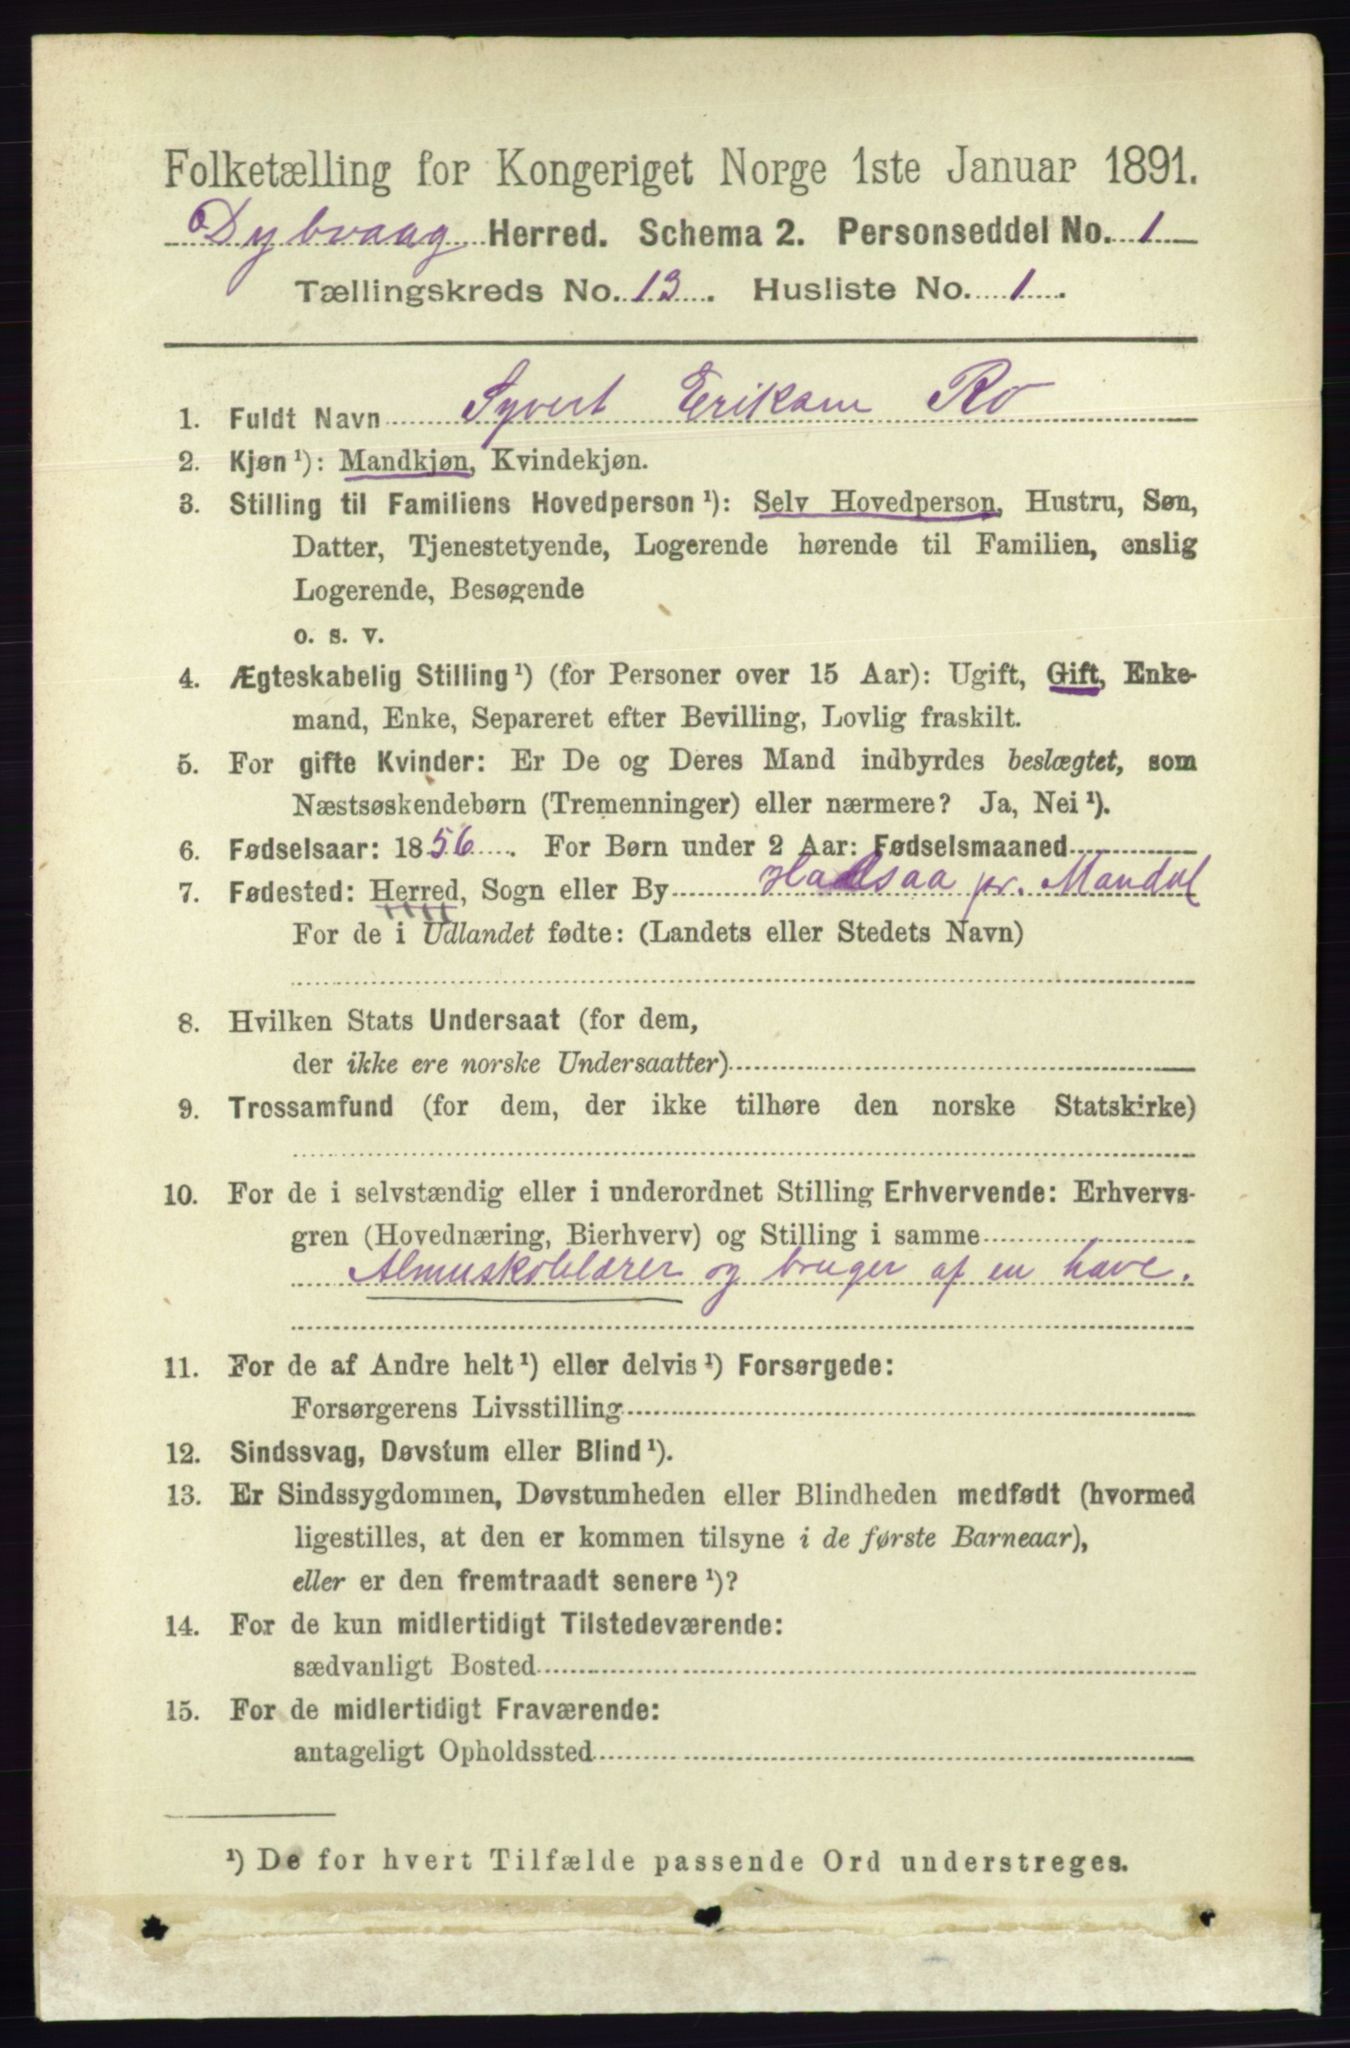 Folketælling for Kongeriget Norge 1ste Januar 1891.
Dybvaag Herred. Schema 2. Personseddel No. 1
Tællingskreds No. 13. Husliste No. 1.
1. Fuldt Navn Syvert Eriksen Rø
2. Kjøn ¹): Mandkjøn, Kvindekjøn.
3. Stilling til Familiens Hovedperson ¹): Selv Hovedperson, Hustru, Søn,
Datter, Tjenestetyende, Logerende hørende til Familien, enslig
Logerende, Besøgende
o. s. v.
4. Ægteskabelig Stilling ¹) (for Personer over 15 Aar): Ugift, Gift, Enke-
mand, Enke, Separeret efter Bevilling, Lovlig fraskilt.
5. For gifte Kvinder: Er De og Deres Mand indbyrdes beslægtet, som
Næstsøskendebørn (Tremenninger) eller nærmere? Ja, Nei ¹).
6. Fødselsaar: 1856. For Børn under 2 Aar: Fødselsmaaned
7. Fødested: Herred, Sogn eller By pr. Mandal
For de i Udlandet fødte: (Landets eller Stedets Navn)
8. Hvilken Stats Undersaat (for dem,
der ikke ere norske Undersaatter)
9. Trossamfund (for dem, der ikke tilhøre den norske Statskirke)
10. For de i selvstændig eller i underordnet Stilling Erhvervende: Erhvervs-
gren (Hovednæring, Bierhverv) og Stilling i samme
Almuskolelærer og bruger af en have.
11. For de af Andre helt ¹) eller delvis ¹) Forsørgede:
Forsørgerens Livsstilling
12. Sindssvag, Døvstum eller Blind ¹).
13. Er Sindssygdommen, Døvstumheden eller Blindheden medfødt (hvormed
ligestilles, at den er kommen tilsyne i de første Barneaar),
eller er den fremtraadt senere ¹)?
14. For de kun midlertidigt Tilstedeværende:
sædvanligt Bosted
15. For de midlertidigt Fraværende:
antageligt Opholdssted
¹) De for hvert Tilfælde passende Ord understreges.